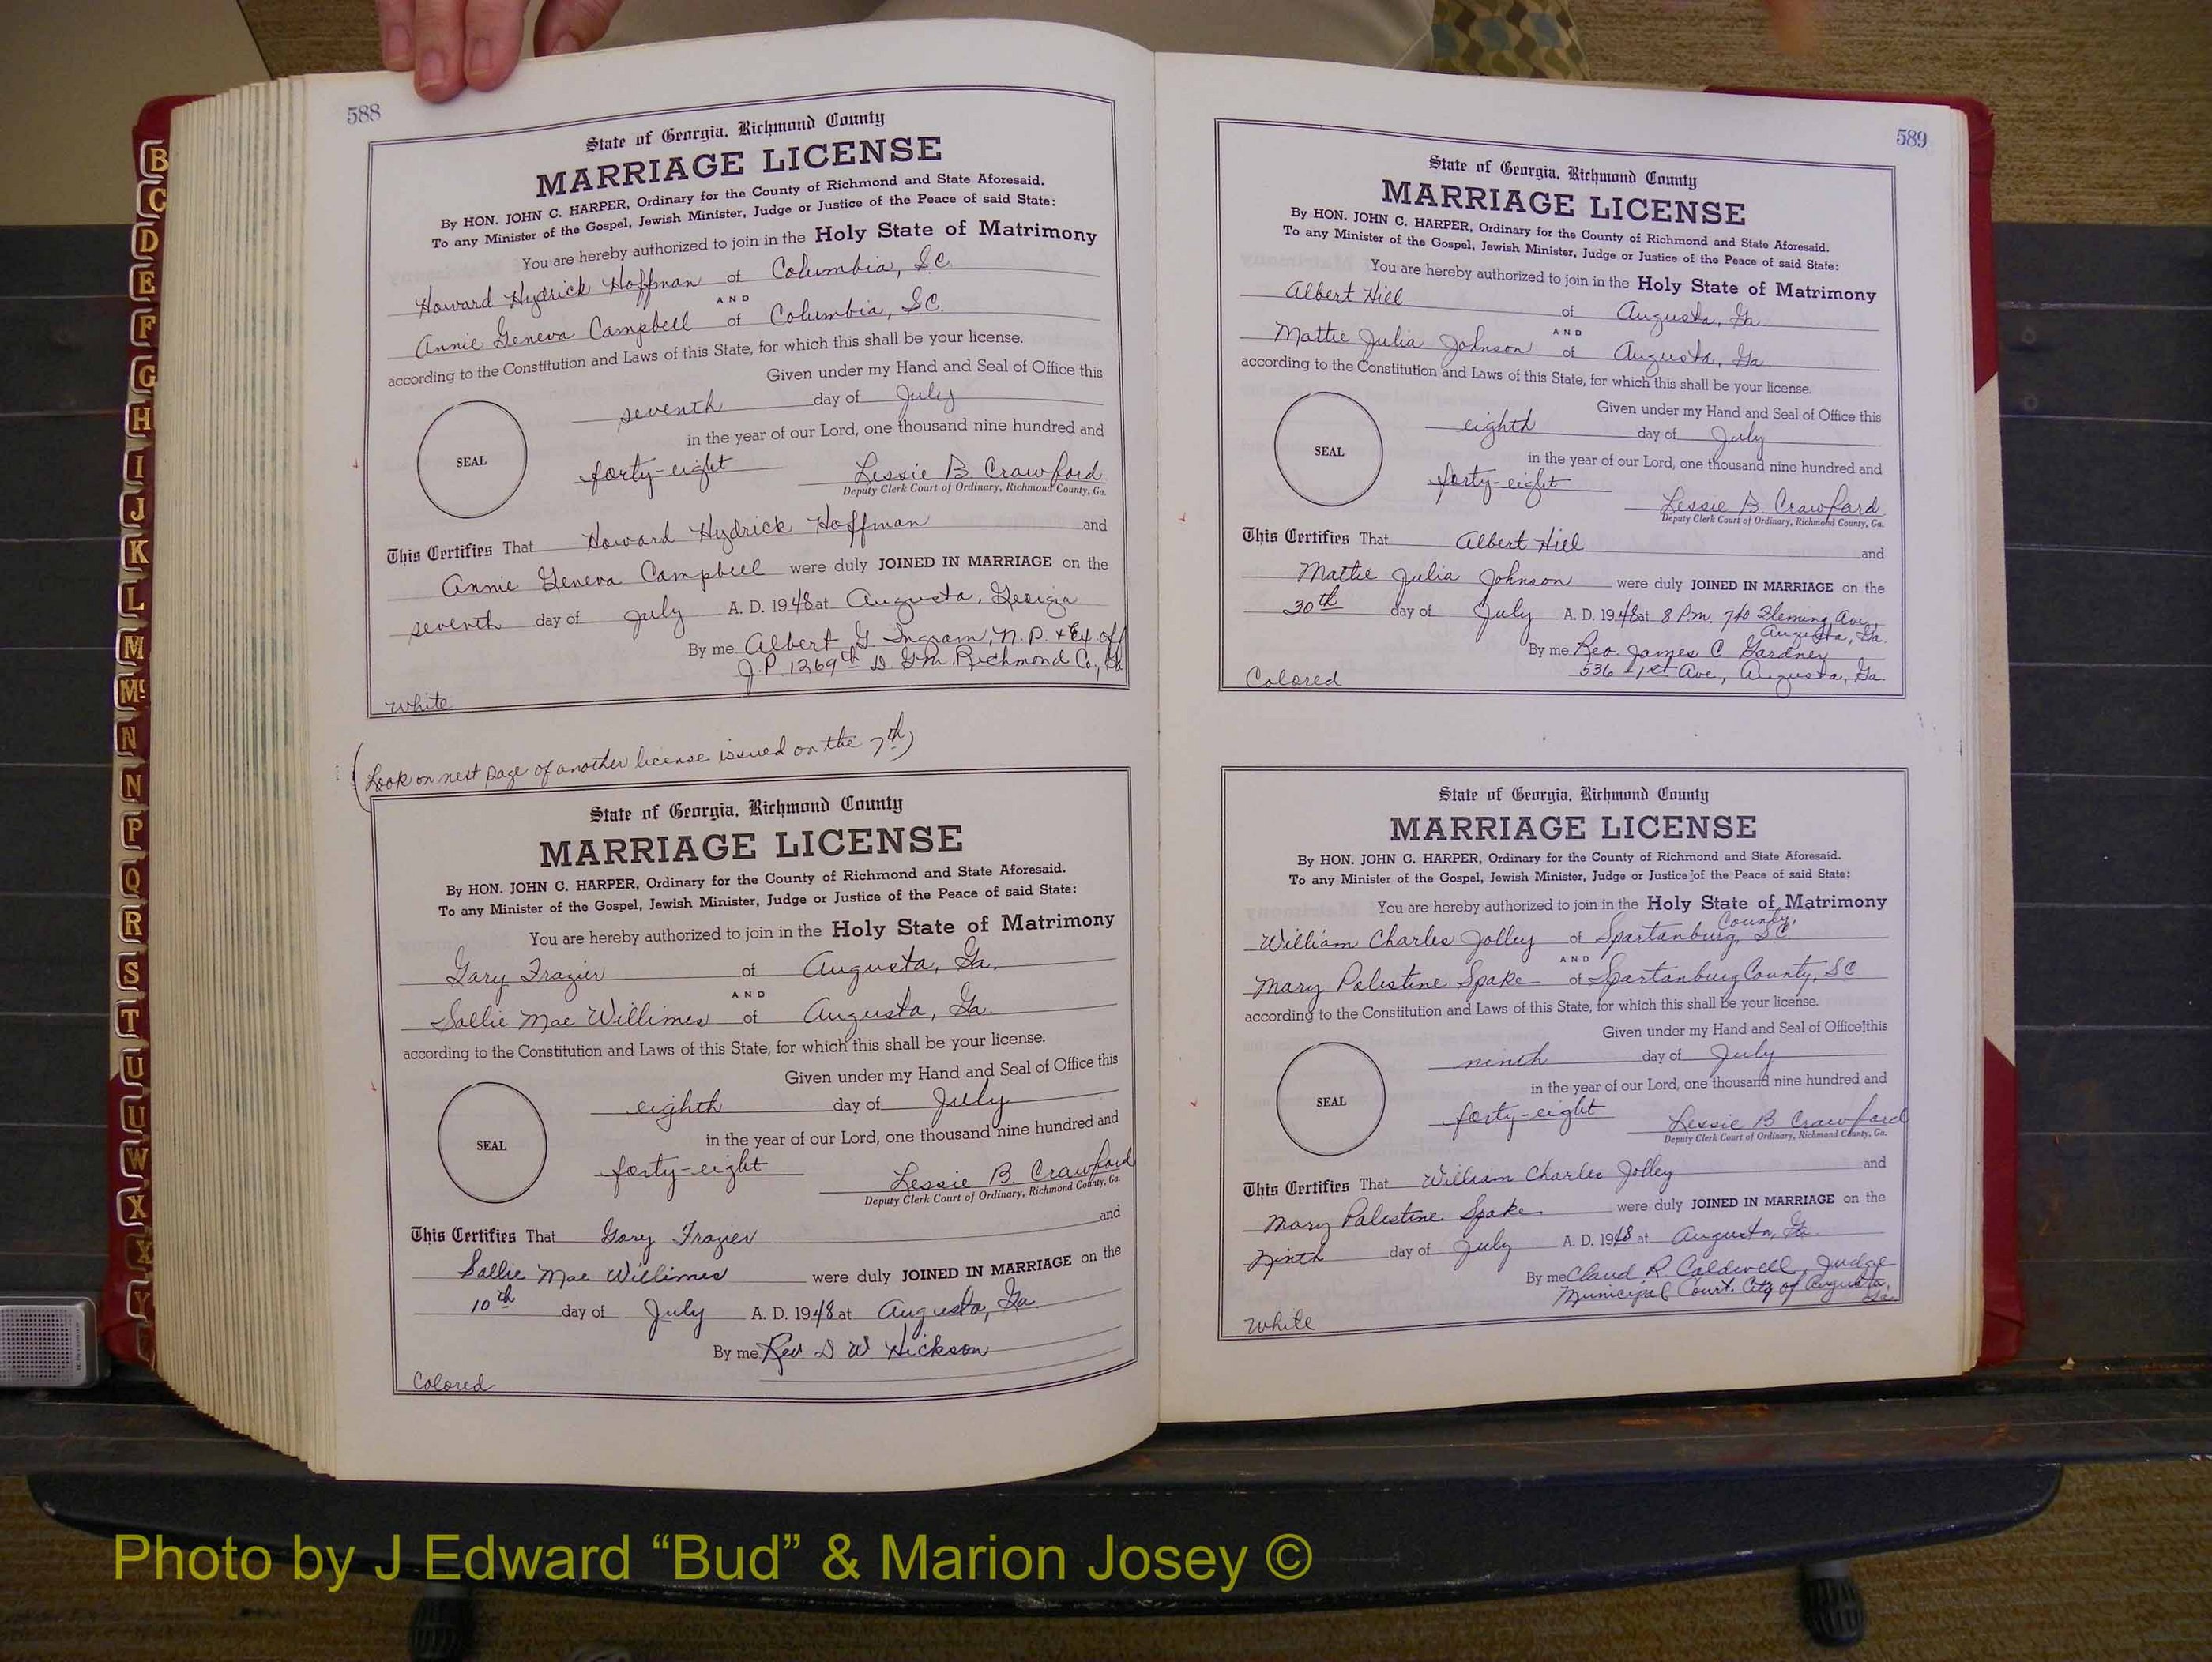 588
State of Georgia, Richmond County
MARRIAGE LICENSE
By HON. JOHN C. HARPER, Ordinary for the County of Richmond and State Aforesaid.
To any Minister of the Gospel, Jewish Minister, Judge or Justice of the Peace of said State:
You are hereby authorized to join in the Holy State of Matrimony
Howard Hydrick Hoffman of Columbia, S.C.
AND
Annie Geneva Campbell of Columbia, S.C.
according to the Constitution and Laws of this State, for which this shall be your license.
Given under my Hand and Seal of Office this
seventh day of July
in the year of our Lord, one thousand nine hundred and
SEAL
forty-eight Lessie B. Crawford
Deputy Clerk Court of Ordinary, Richmond County, Ga.
This Certifies That Howard Hydrick Hoffman and
Annie Geneva Campbell were duly JOINED IN MARRIAGE on the
seventh day of July A. D. 1948 at Augusta, Georgia
By me Albert G. Ingram, N. P. & Ex off
J. P. 1269th D. G.M. Richmond Co., Ga
White
(Look on next page of another license issued on the 7th)
State of Georgia, Richmond County
MARRIAGE LICENSE
By HON. JOHN C. HARPER, Ordinary for the County of Richmond and State Aforesaid.
To any Minister of the Gospel, Jewish Minister, Judge or Justice of the Peace of said State:
You are hereby authorized to join in the Holy State of Matrimony
Gary Frazier of Augusta, Ga.
AND
Sallie Mae Willimes of Augusta, Ga.
according to the Constitution and Laws of this State, for which this shall be your license.
Given under my Hand and Seal of Office this
eighth day of July
in the year of our Lord, one thousand nine hundred and
SEAL
forty-eight Lessie B. Crawford
Deputy Clerk Court of Ordinary, Richmond County, Ga.
This Certifies That Gary Frazier and
Sallie Mae Willimes were duly JOINED IN MARRIAGE on the
10th day of July A. D. 1948 at Augusta, Ga.
By me Rev D W Hickson
Colored
589
State of Georgia, Richmond County
MARRIAGE LICENSE
By HON. JOHN C. HARPER, Ordinary for the County of Richmond and State Aforesaid.
To any Minister of the Gospel, Jewish Minister, Judge or Justice of the Peace of said State:
You are hereby authorized to join in the Holy State of Matrimony
Albert Hill of Augusta, Ga.
AND
Mattie Julia Johnson of Augusta, Ga.
according to the Constitution and Laws of this State, for which this shall be your license.
Given under my Hand and Seal of Office this
eighth day of July
in the year of our Lord, one thousand nine hundred and
SEAL
forty-eight Lessie B Crawford
Deputy Clerk Court of Ordinary, Richmond County, Ga.
This Certifies That Albert Hill and
Mattie Julia Johnson were duly JOINED IN MARRIAGE on the
30th day of July A. D. 1948 at 8 P.m. 740 Fleming Ave.,
Augusta, Ga.
By me Rev. James C Gardner
536 1st Ave., Augusta, Ga.
Colored
State of Georgia, Richmond County
MARRIAGE LICENSE
By HON. JOHN C. HARPER, Ordinary for the County of Richmond and State Aforesaid.
To any Minister of the Gospel, Jewish Minister, Judge or Justice of the Peace of said State:
You are hereby authorized to join in the Holy State of Matrimony
County,
William Charles Jolley of Spartanburg, S.C.
AND
Mary Palestine Spake of Spartanburg County, SC
according to the Constitution and Laws of this State, for which this shall be your license.
Given under my Hand and Seal of Office this
ninth day of July
in the year of our Lord, one thousand nine hundred and
SEAL
forty-eight Lessie B Crawford
Deputy Clerk Court of Ordinary, Richmond County, Ga.
This Certifies That William Charles Jolley and
Mary Palestine Spake were duly JOINED IN MARRIAGE on the
Ninth day of July A. D. 1948 at Augusta, Ga.
By me Claud R Caldwell, Judge
Municipal Court, City of Augusta,
Ga.
White
B
C
D
E
F
G
H
I
J
K
L
M
Mc
N
N
P
Q
R
S
T
U
U
W
X
X
Y
Photo by J Edward “Bud” & Marion Josey ©